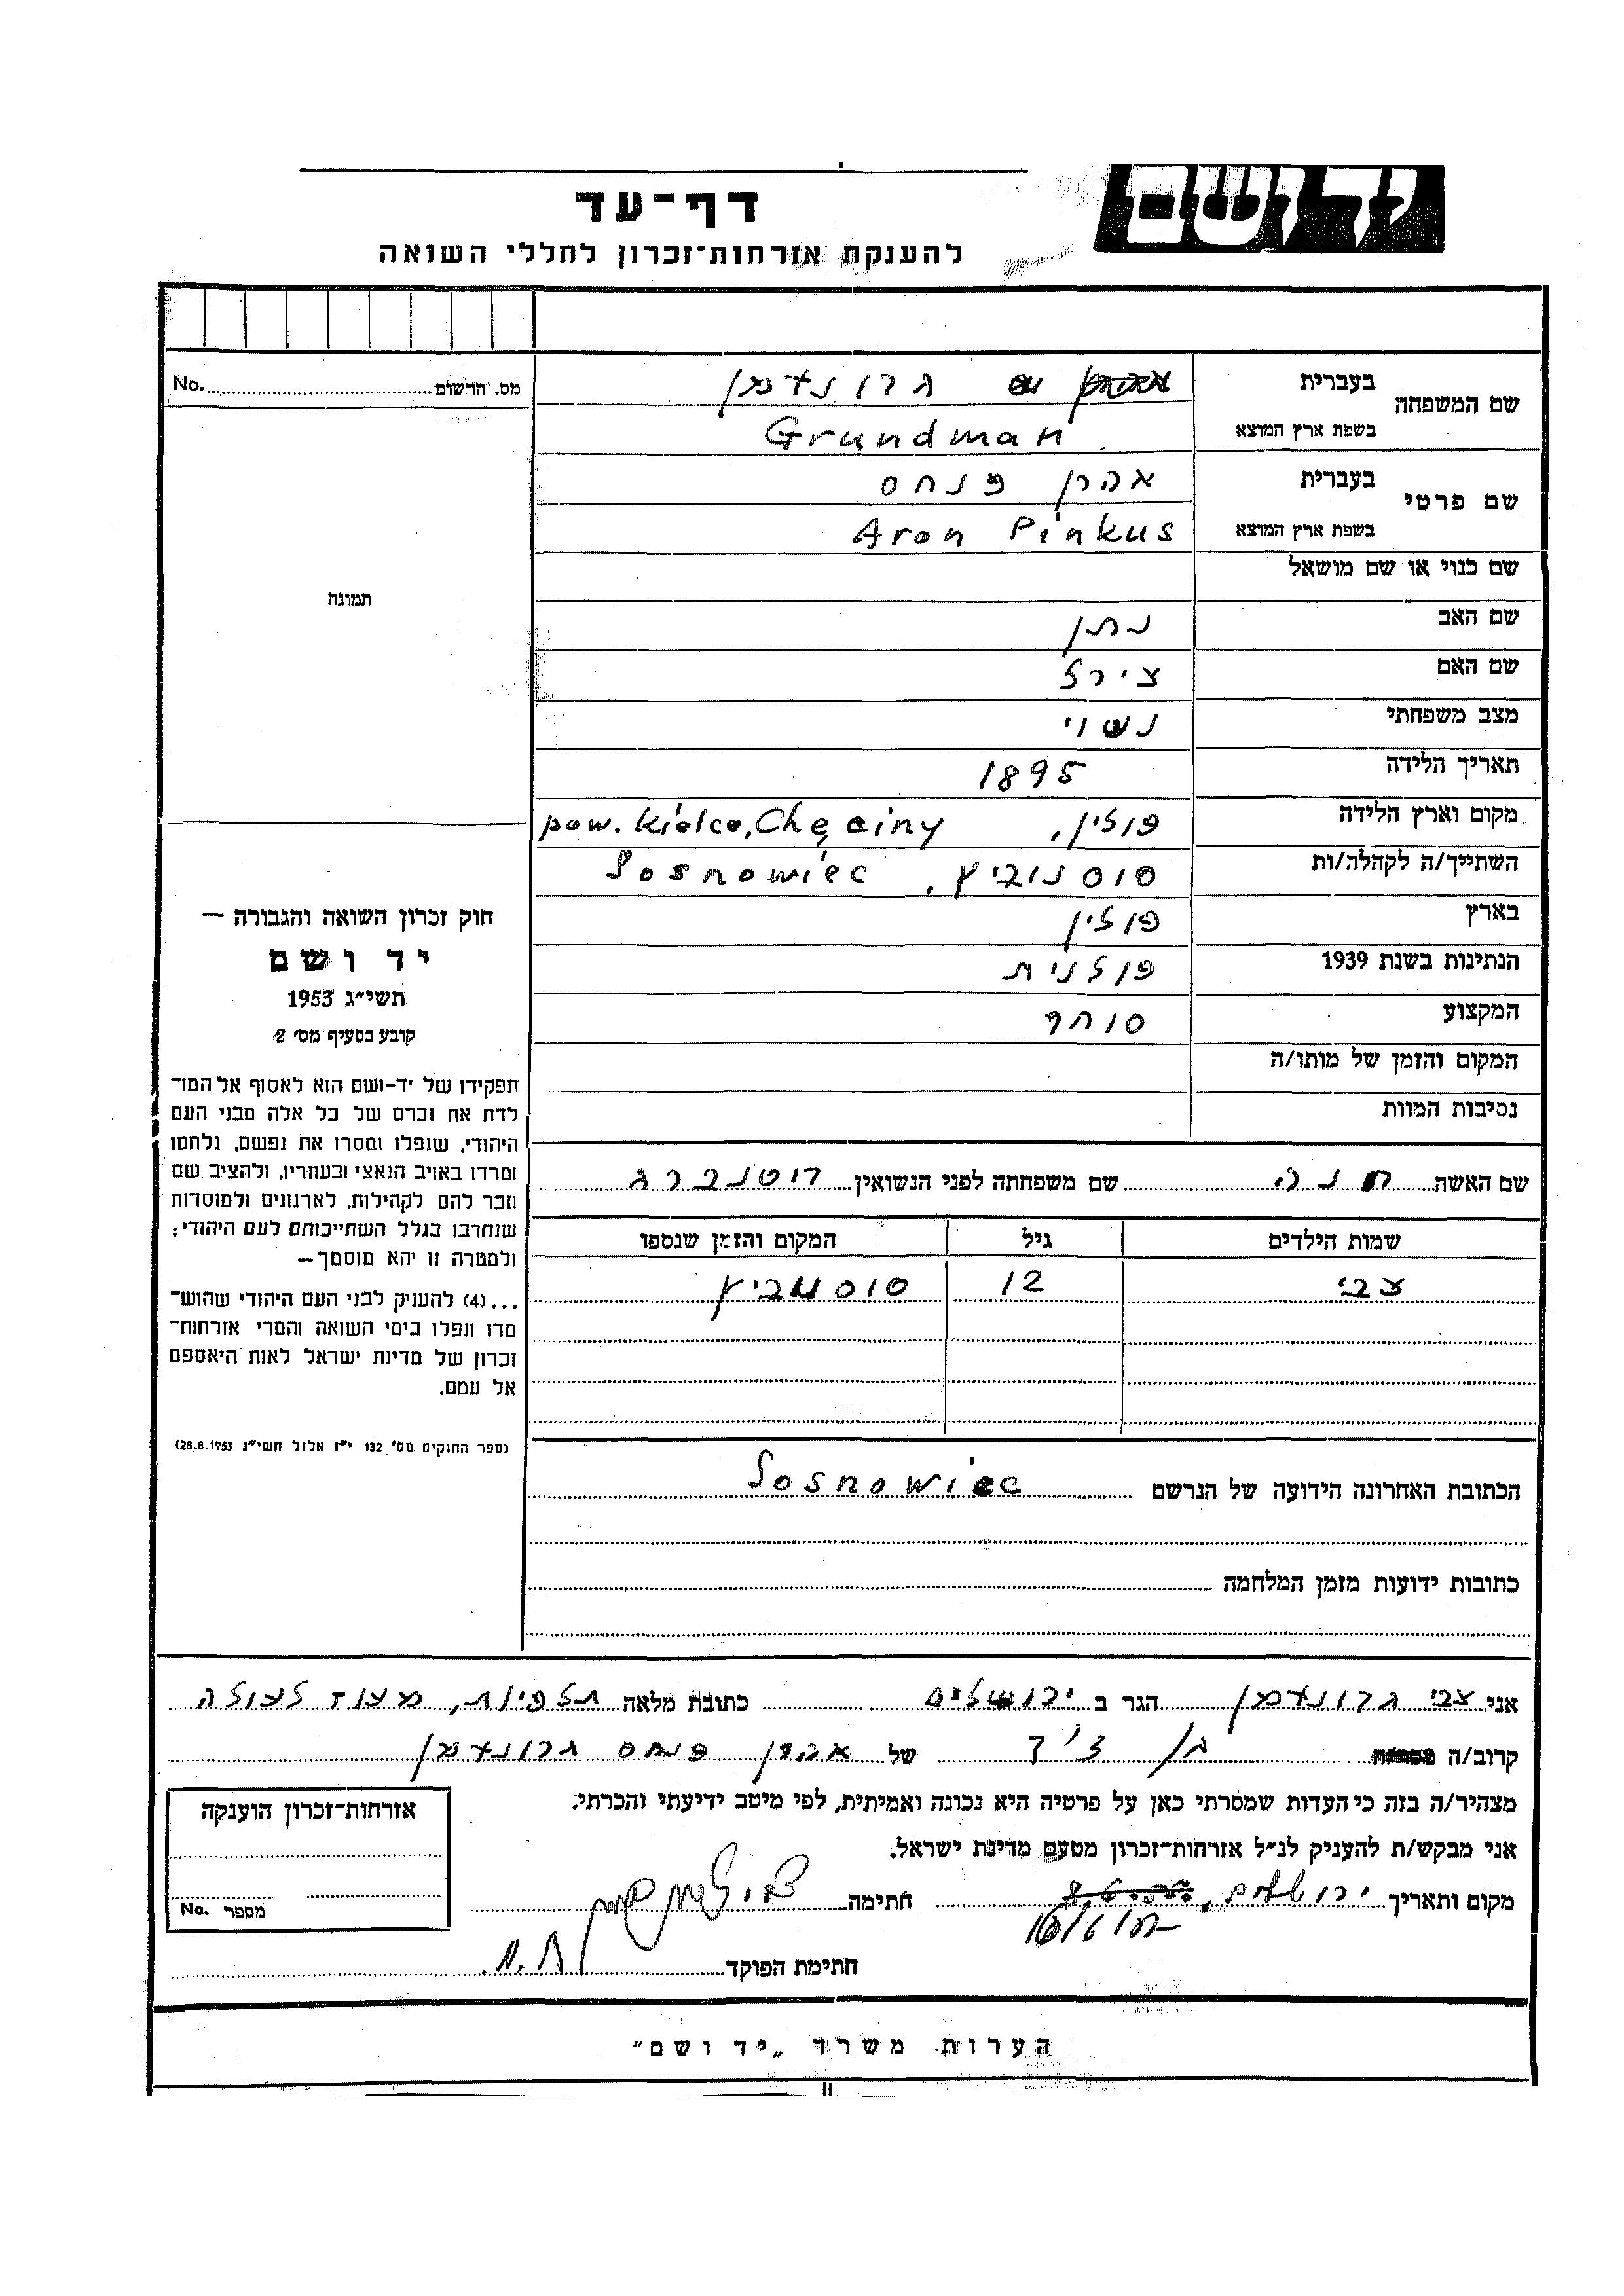 יד ושם
דף־עד
להענקת אזרחות־זכרון לחללי השואה
שם המשפחה בעברית גרונדמן
בשפת ארץ המוצא Grundman
שם פרטי בעברית אהרן פנחס
בשפת ארץ המוצא Aron Pinkus
שם כנוי או שם מושאל
שם האב נתן
שם האם צירל
מצב משפחתי נשוי
תאריך הלידה 1895
מקום וארץ הלידה פולין, pow. Kielce, Chęciny
השתייך/ה לקהלה/ות סוסנוביץ, Sosnowiec
בארץ פולין
הנתינות בשנת 1939 פולנית
המקצוע סוחר
המקום והזמן של מותו/ה
נסיבות המוות
מס. הרשום No.
תמונה
חוק זכרון השואה והגבורה —
יד ושם
תשי״ג 1953
קובע בסעיף מס׳ 2
תפקידו של יד-ושם הוא לאסוף אל המו־
לדת את זכרם של כל אלה מבני העם
היהודי, שנפלו ומסרו את נפשם, נלחמו
ומרדו באויב הנאצי ובעוזריו, ולהציב שם
וזכר להם לקהילות, לארגונים ולמוסדות
שנחרבו בגלל השתייכותם לעם היהודי;
ולמטרה זו יהא מוסמך—
...(4) להעניק לבני העם היהודי שהוש־
מדו ונפלו בימי השואה והמרי אזרחות־
זכרון של מדינת ישראל לאות היאספם
אל עמם.
(ספר החוקים מס׳ 132 י״ז אלול תשי״ג 28.8.1953)
שם האשה חנה שם משפחתה לפני הנשואין רוטנברג
שמות הילדים גיל המקום והזמן שנספו
צבי 12 סוסנוביץ
הכתובת האחרונה הידועה של הנרשם Sosnowiec
כתובות ידועות מזמן המלחמה
אני צבי גרונדמן הגר ב ירושלים כתובת מלאה תלפיות, מעוז לעולה
קרוב/ה של אהרן פנחס גרונדמן
מצהיר/ה בזה כי העדות שמסרתי כאן על פרטיה היא נכונה ואמיתית, לפי מיטב ידיעתי והכרתי.
אני מבקש/ת להעניק לנ״ל אזרחות־זכרון מטעם מדינת ישראל.
מקום ותאריך ירושלים, חתימה
חתימת הפוקד
אזרחות־זכרון הוענקה
מספר No.
הערות משרד „יד ושם״